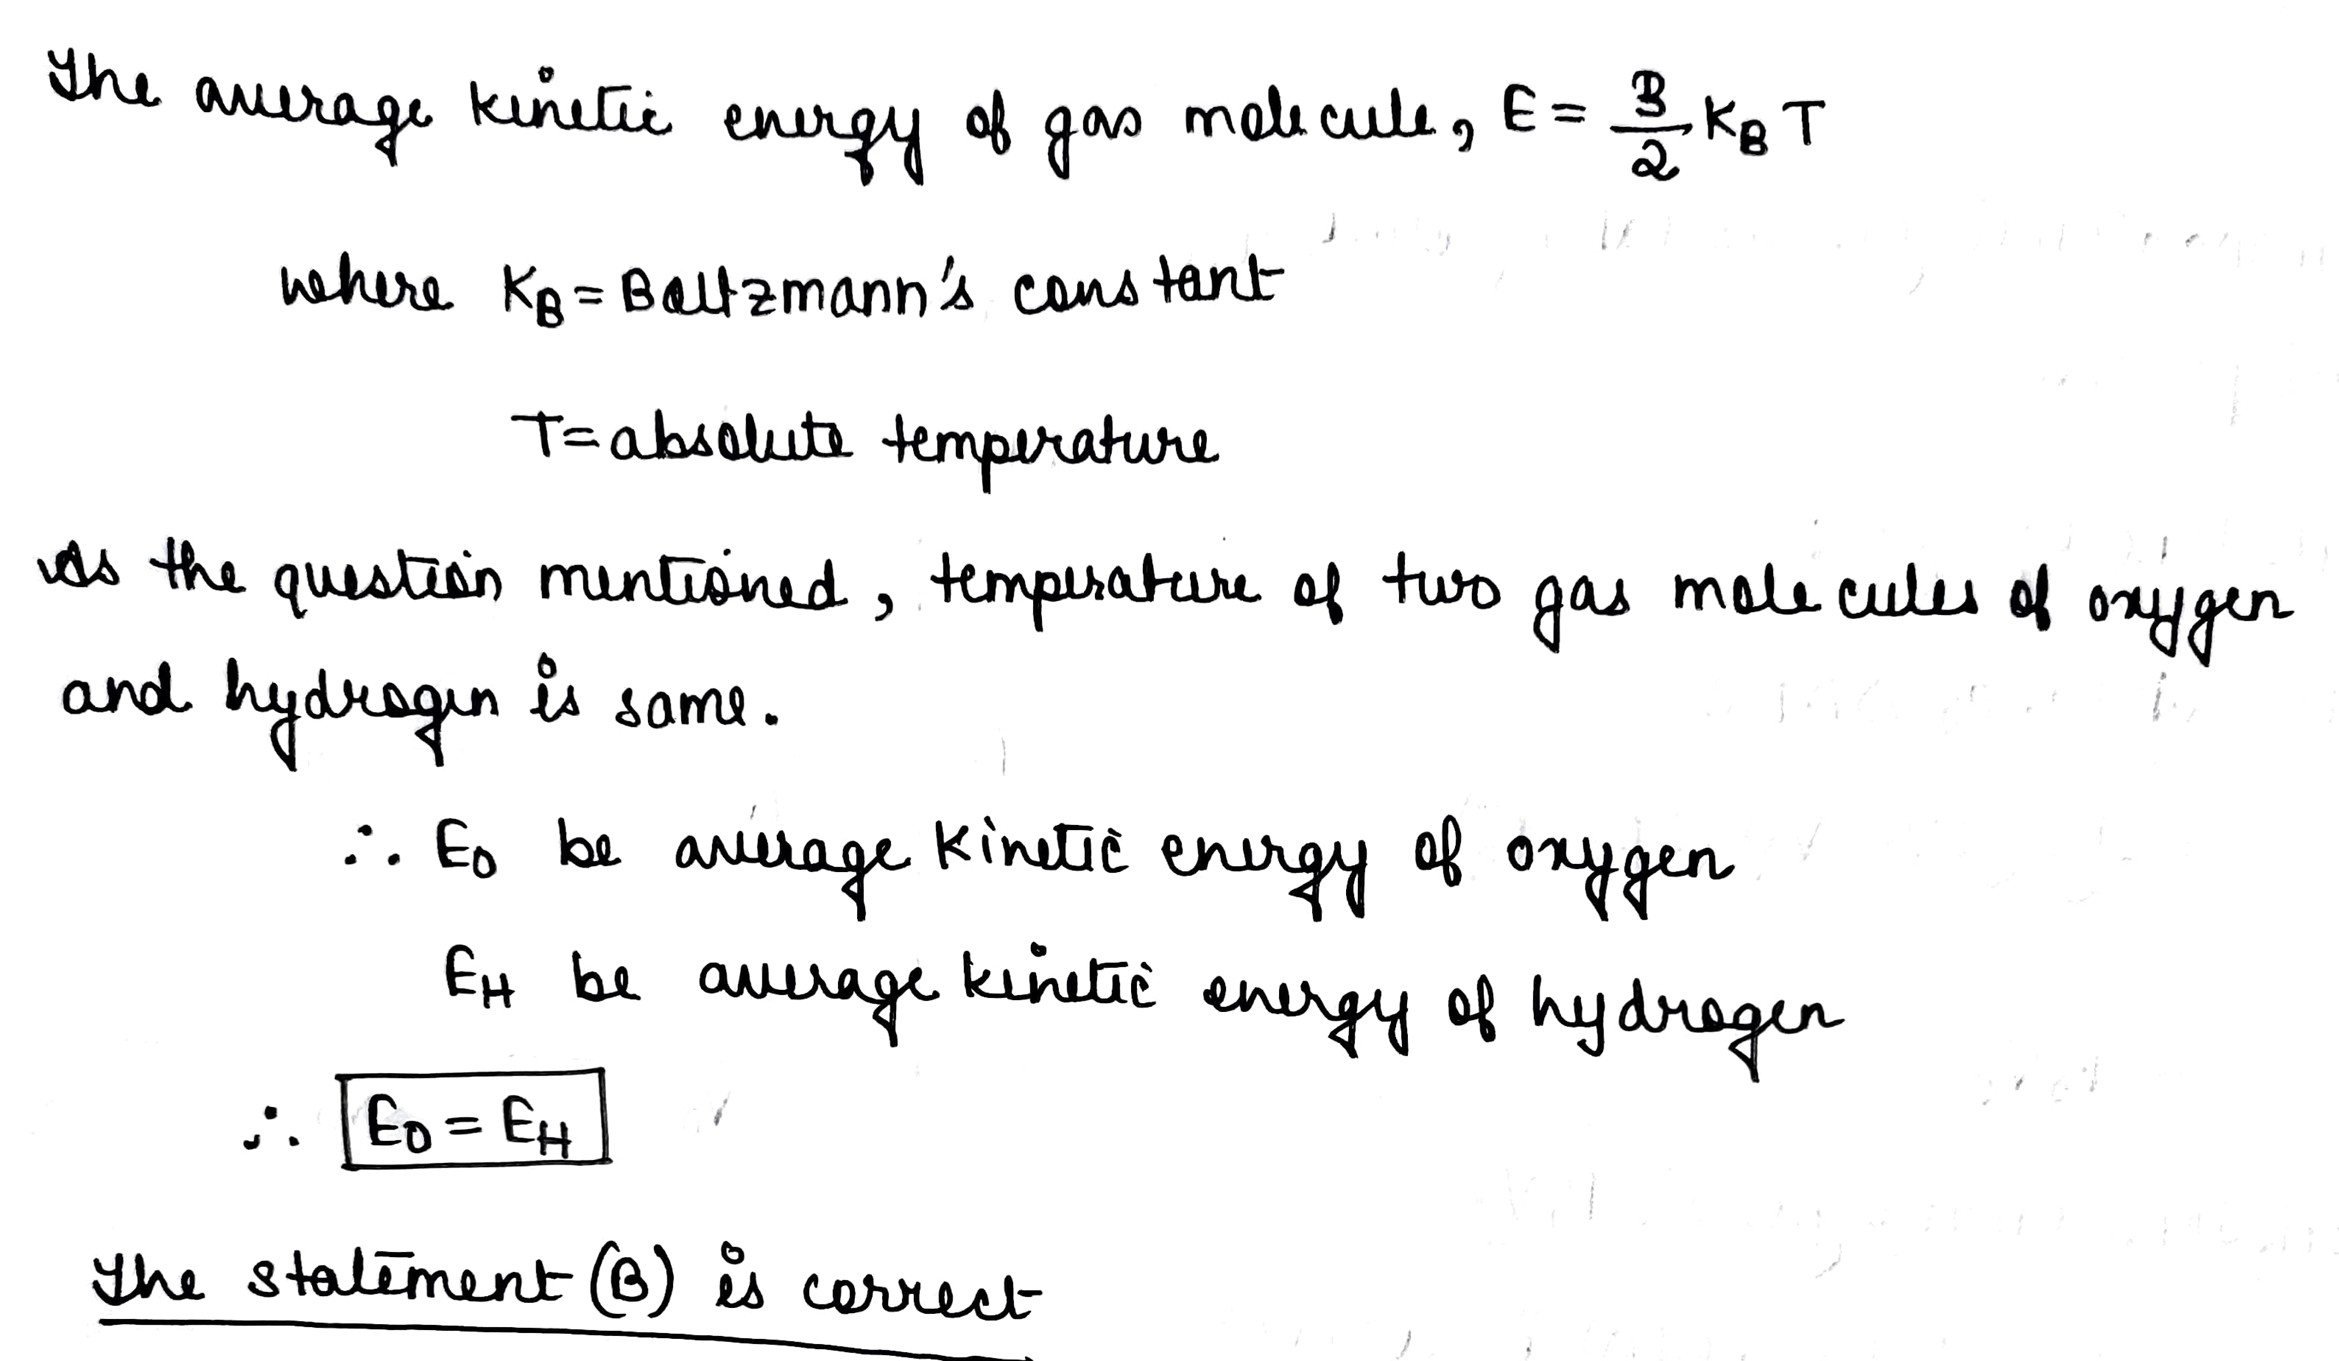 The average kinetic energy of gas molecule, E = 3/2 K_B T
where K_B = Boltzmann's constant
T = absolute temperature
As the question mentioned, temperature of two gas molecules of oxygen
and hydrogen is same.
∴ E_O be average kinetic energy of oxygen
E_H be average kinetic energy of hydrogen
∴ E_O = E_H
The statement (B) is correct